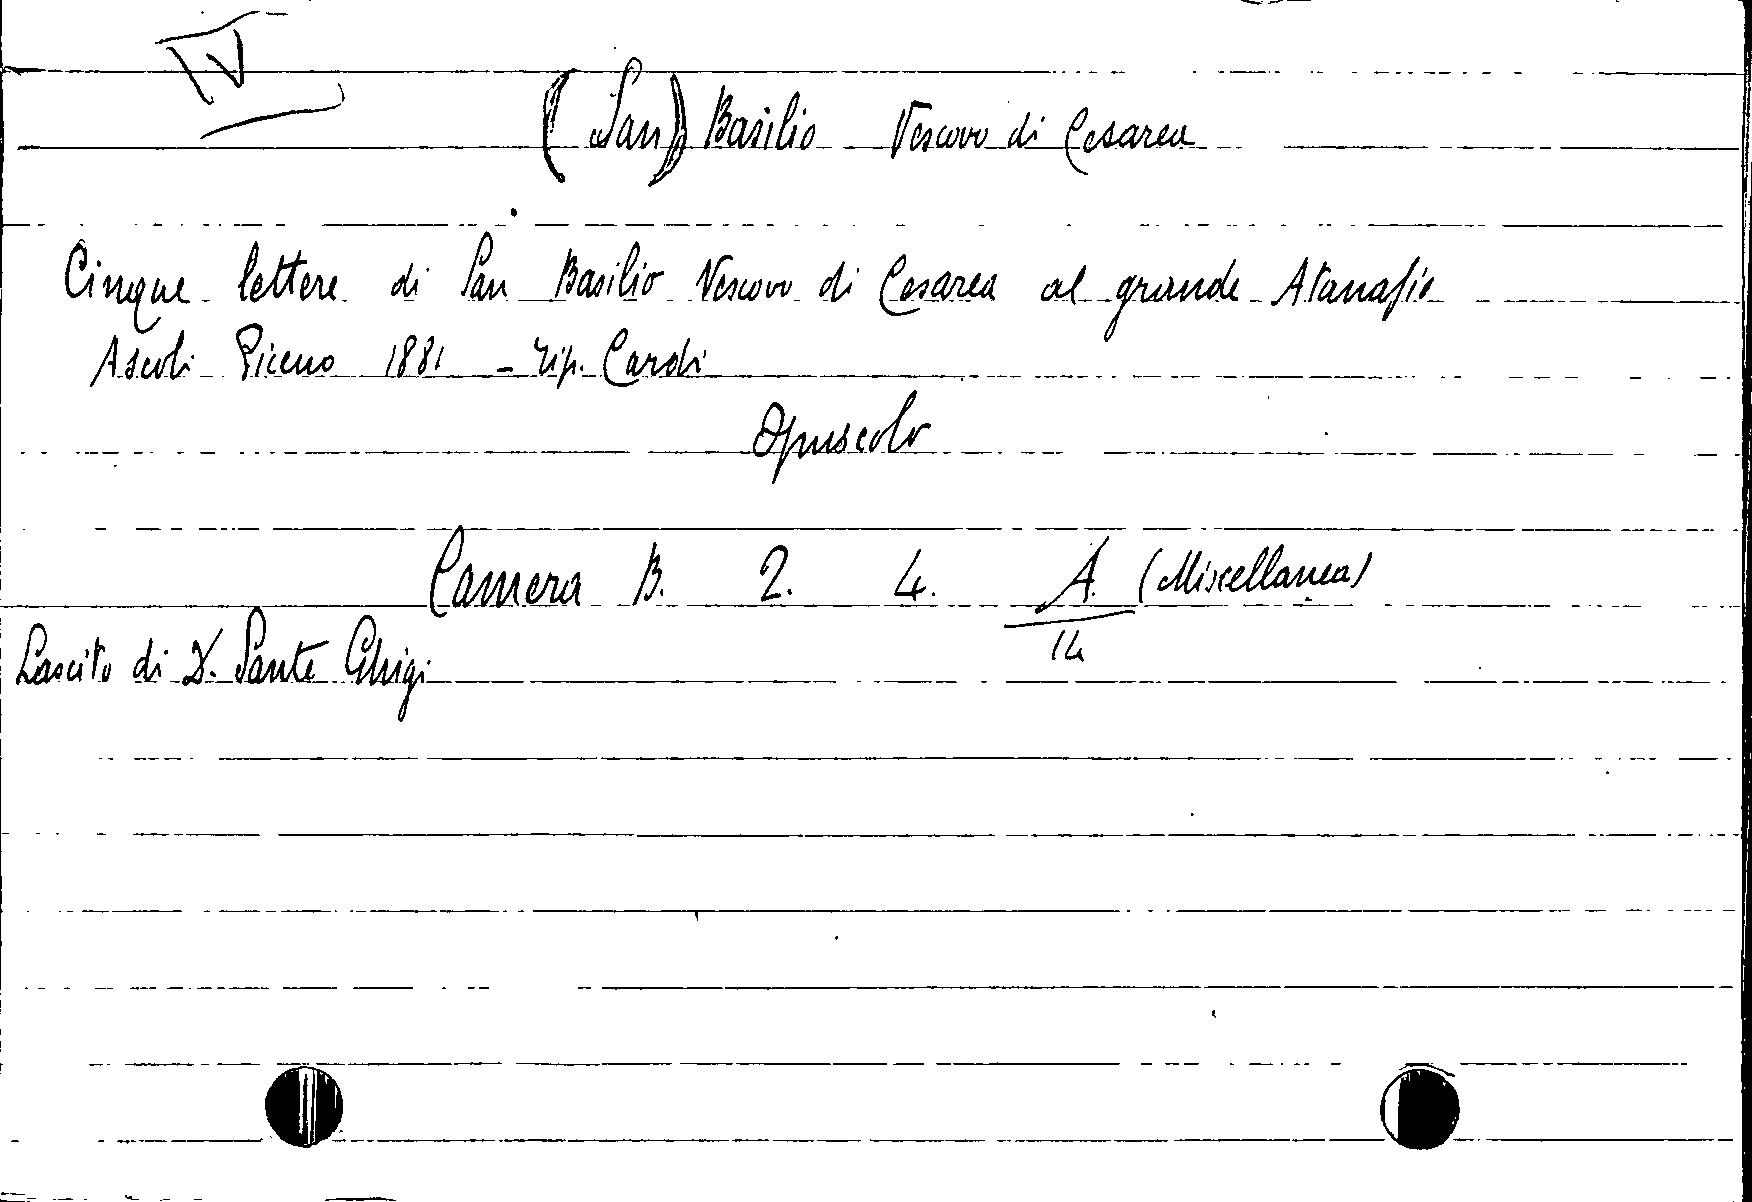 IV
(San) Basilio Vescovo di Cesarea
Cinque lettere di San Basilio Vescovo di Cesarea al grande Atanasio
Ascoli Piceno 1881 - Tip. Cardi
Opuscolo
Camera B. 2. 4. A. (Miscellanea)
14
Lascito di D. Sante Ghigi